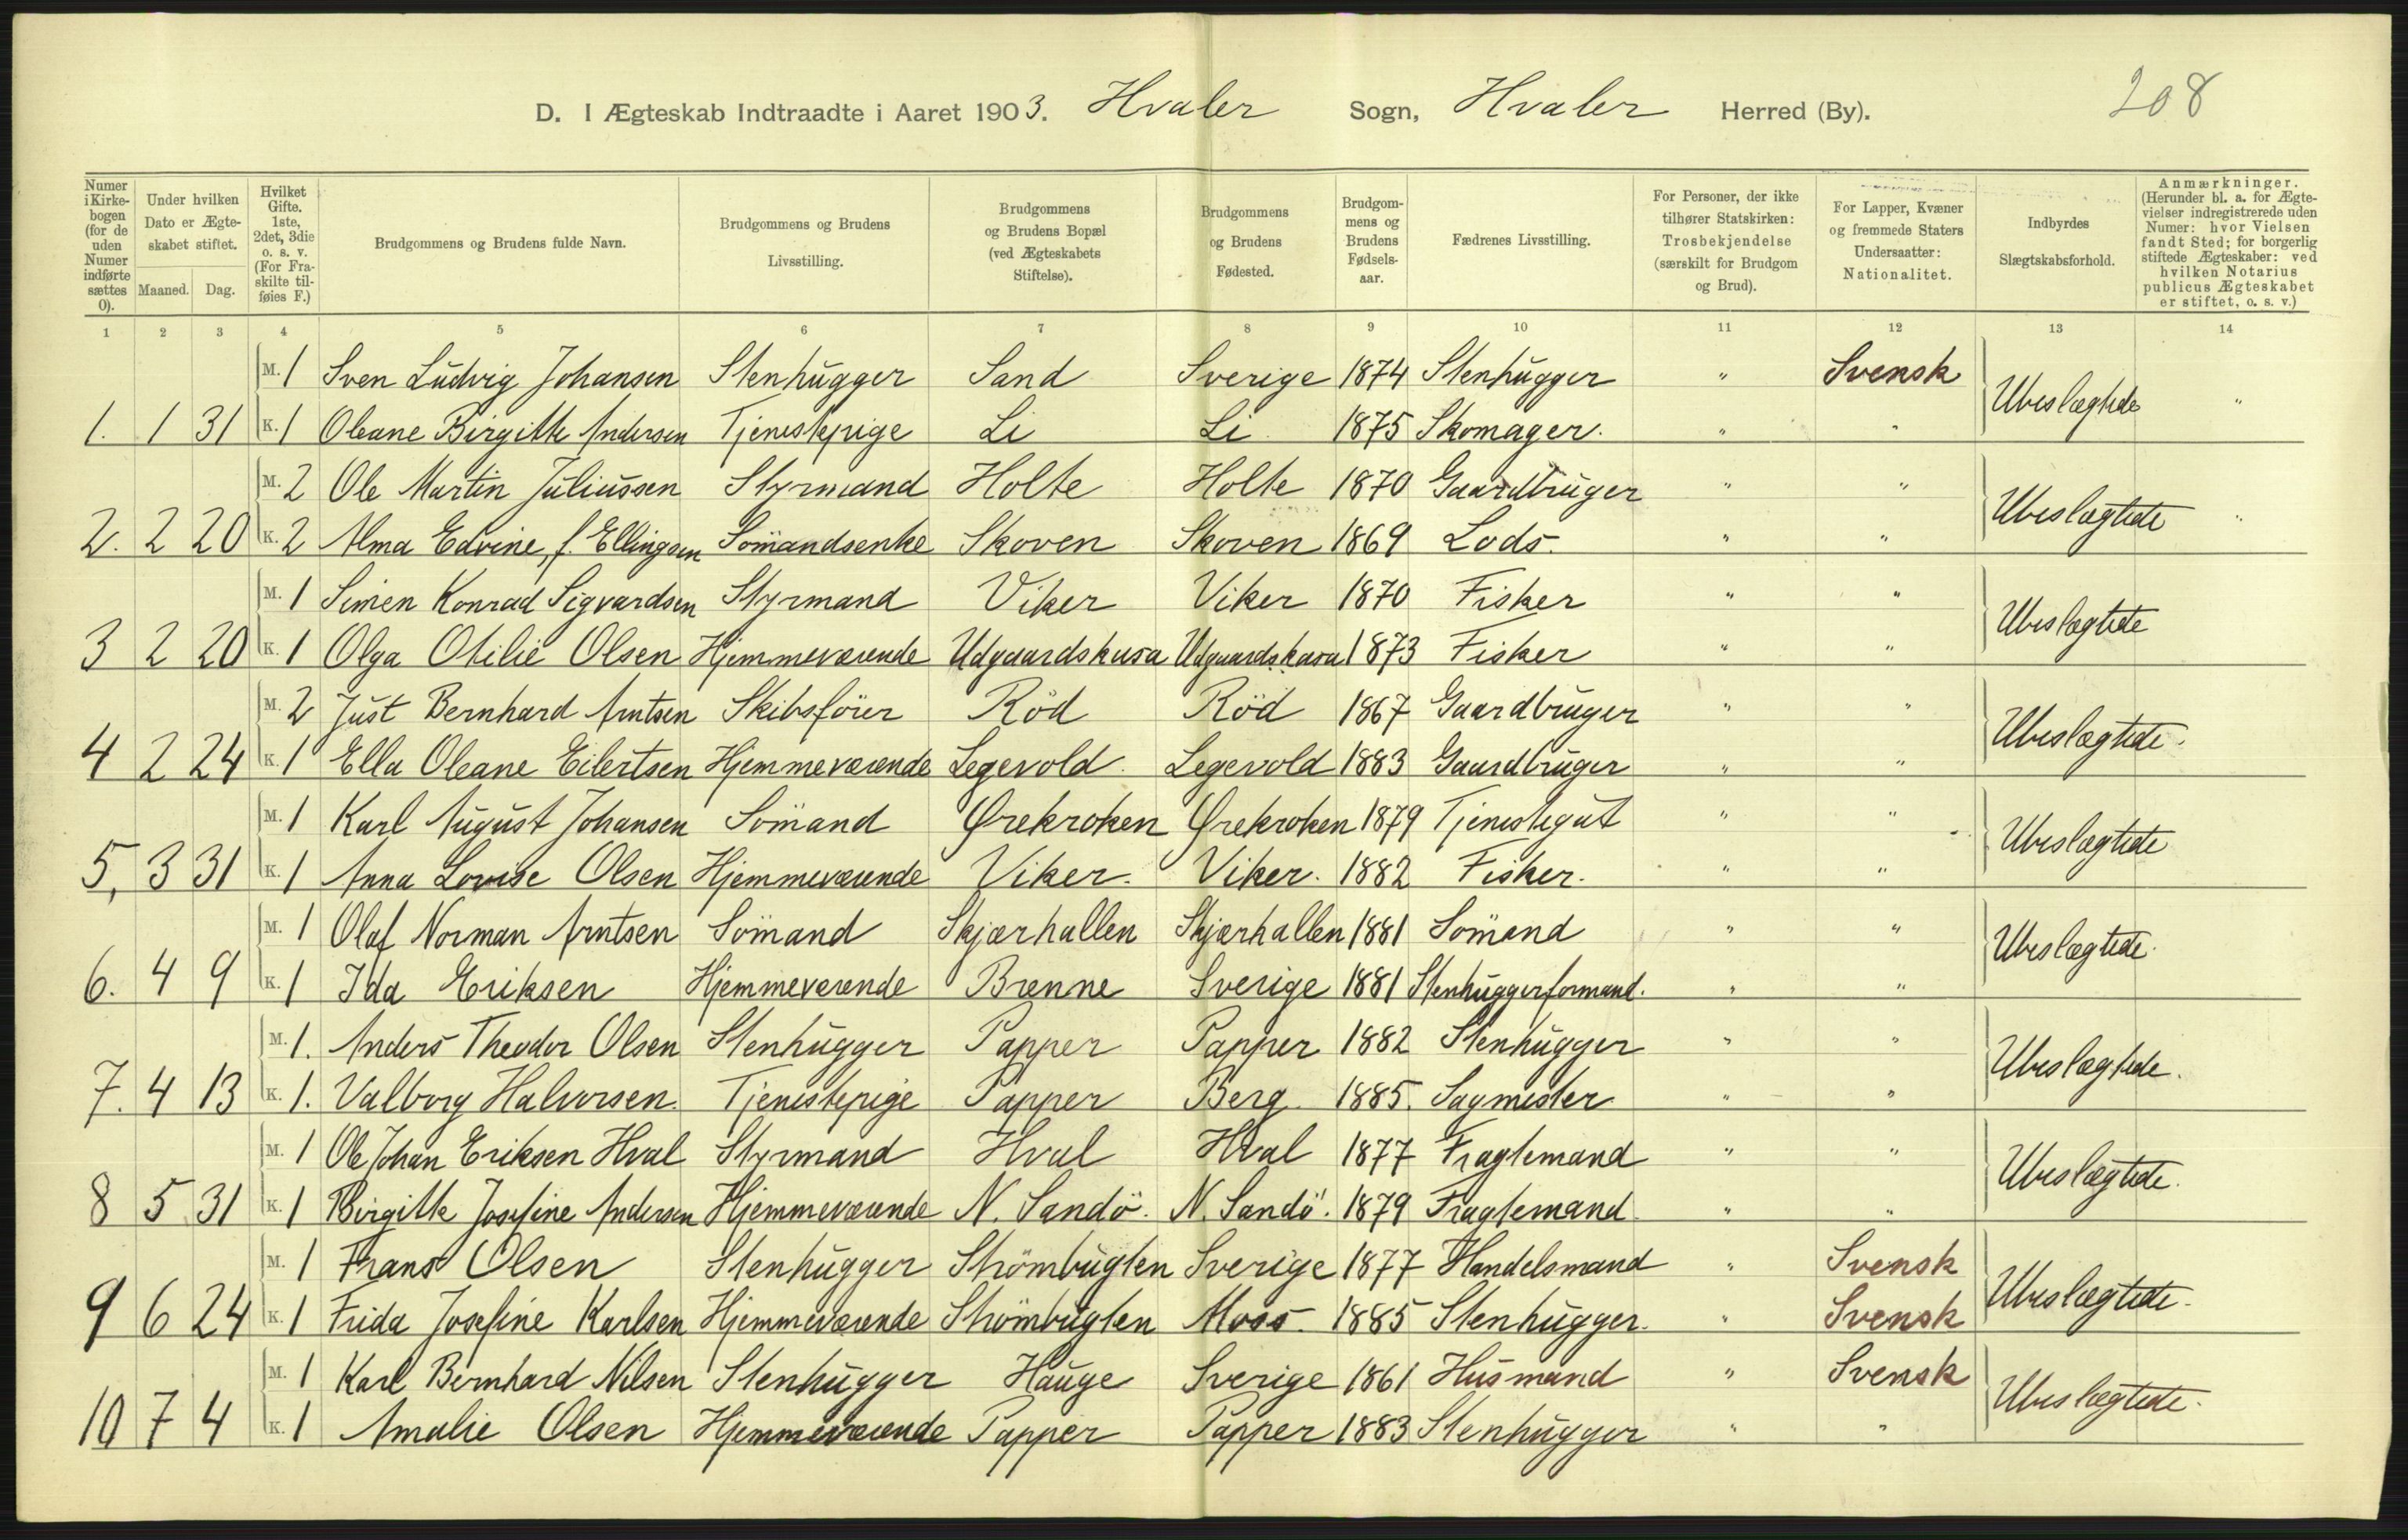 D. I Ægteskab Indtraadte i Aaret 1903. Hvaler Sogn, Hvaler Herred (By). 208
Numer i Kirkebogen (for de uden Numer indførte sættes 0).
Under hvilken Dato er Ægteskabet stiftet.
Maaned. Dag.
Hvilket Gifte. 1ste, 2det, 3die o. s. v. (For Fraskilte tilføies F.)
Brudgommens og Brudens fulde Navn.
Brudgommens og Brudens Livsstilling.
Brudgommens og Brudens Bopæl (ved Ægteskabets Stiftelse).
Brudgommens og Brudens Fødested.
Brudgommens og Brudens Fødselsaar.
Fædrenes Livsstilling.
For Personer, der ikke tilhører Statskirken: Trosbekjendelse (særskilt for Brudgom og Brud).
For Lapper, Kvæner og fremmede Staters Undersaatter: Nationalitet.
Indbyrdes Slægtskabsforhold.
Anmærkninger. (Herunder bl. a. for Ægtevielser indregistrerede uden Numer: hvor Vielsen fandt Sted; for borgerlig stiftede Ægteskaber: ved hvilken Notarius publicus Ægteskabet er stiftet, o. s. v.)
1 2 3 4 5 6 7 8 9 10 11 12 13 14
M. 1 Sven Ludvig Johansen Stenhugger Sand Sverige 1874 Stenhugger " Svensk
Ubeslægtede "
1. 1 31 K. 1 Oleane Birgitte Andersen Tjenestepige Li Li 1875 Skomager. " "
M. 2 Ole Martin Juliussen Styrmand Holte Holte 1870 Gaardbruger " "
Ubeslægtede "
2. 2 20 K. 2 Alma Edvine, f. Ellingsen Sömandsenke Skoven Skoven 1869 Lods. " "
M. 1 Simen Konrad Sigvardsen Styrmand Viker Viker 1870 Fisker " "
Ubeslægtede
3 2 20 K. 1 Olga Otilie Olsen Hjemmeværende Udgaardskasa Udgaardskasa 1873 Fisker " "
M. 2 Just Bernhard Arntsen Skibsförer Röd Röd 1867 Gaardbruger " "
Ubeslægtede.
4 2 24 K. 1 Ella Oleane Eilertsen Hjemmeværende Legevold. Legevold 1883 Gaardbruger " "
M. 1 Karl August Johansen Sömand Ørekroken Ørekroken 1879 Tjenestegut " "
Ubeslægtede
5, 3 31 K. 1 Anna Lovise Olsen Hjemmeværende Viker. Viker. 1882 Fisker. " "
M. 1 Olaf Norman Arntsen Sömand Skjærhallen Skjærhallen 1881 Sömand " "
Ubeslægtede.
6. 4 9 K. 1 Ida Eriksen Hjemmeværende Brenne Sverige 1881 Stenhuggerformand. " "
M. 1. Anders Theodor Olsen Stenhugger Papper Papper 1882 Stenhugger " "
Ubeslægtede.
7. 4 13 K. 1. Valborg Halvorsen. Tjenestepige Papper Berg. 1885. Sagmester " "
M. 1 Ole Johan Eriksen Hval Styrmand Hval Hval 1877 Fragtemand " "
Ubeslægtede.
8 5 31 K. 1 Birgitte Josefine Andersen Hjemmeværende N. Sandö. N. Sandö. 1879 Fragtemand " "
M. 1 Frans Olsen Stenhugger Strömbugten Sverige 1877 Handelsmand " Svensk
Ubeslægtede.
9 6 24 K. 1 Frida Josefine Karlsen Hjemmeværende Strömbugten Moss. 1885 Stenhugger. " Svensk
M. 1 Karl Bernhard Nilsen Stenhugger Hauge Sverige 1861 Husmand " Svensk
Ubeslægtede.
10 7 4 K. 1 Amalie Olsen Hjemmeværende Papper Papper 1883 Stenhugger " "